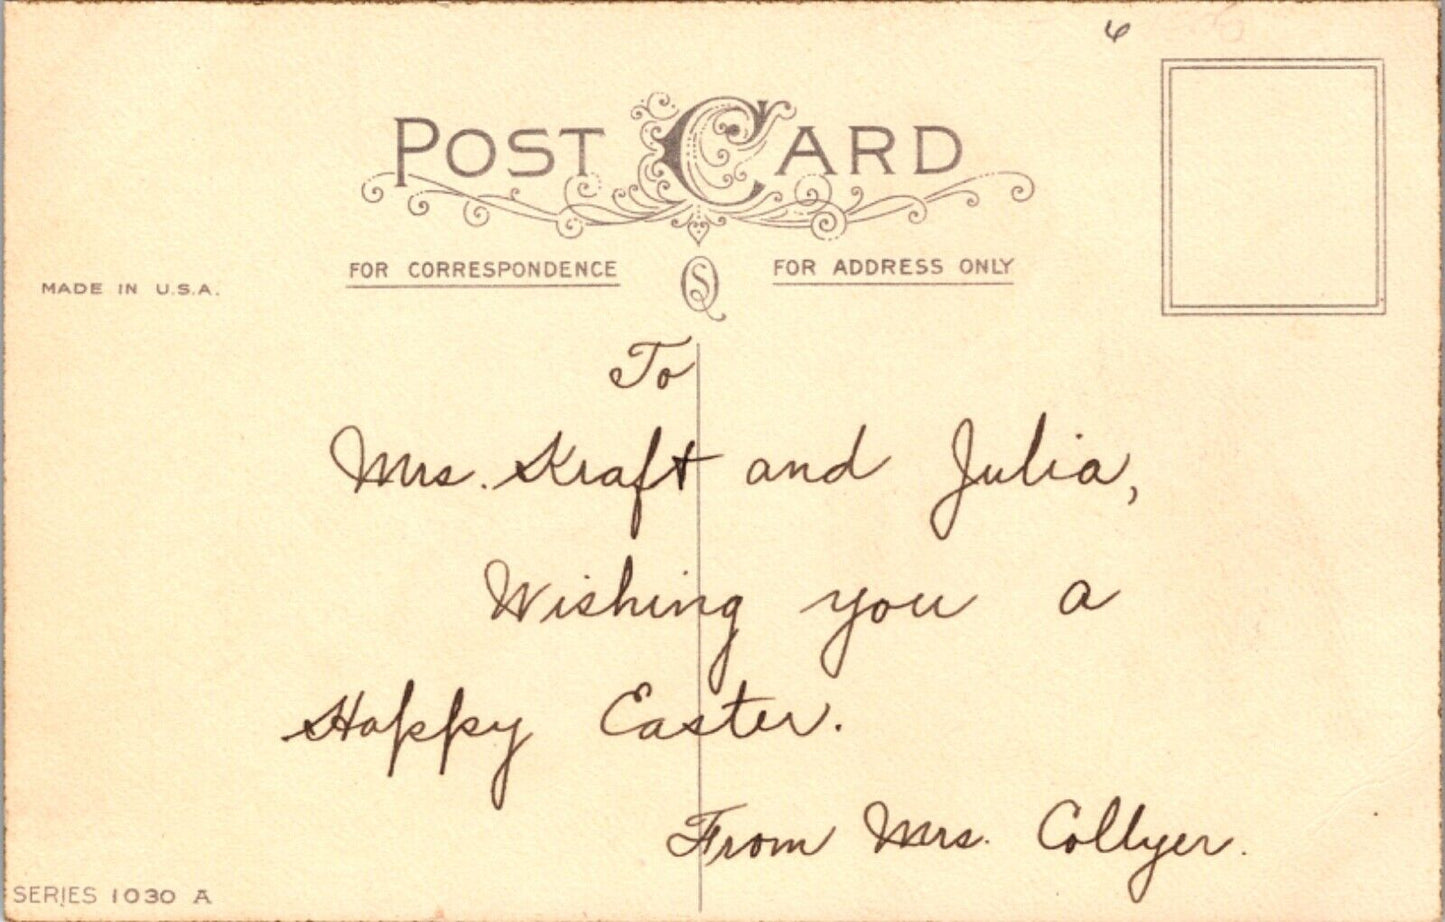 6
POST CARD
FOR CORRESPONDENCE
FOR ADDRESS ONLY
MADE IN U.S.A.
SQ
To
Mrs. Kraft and Julia,
Wishing you a
Happy Easter.
From Mrs. Collyer.
SERIES 1030 A